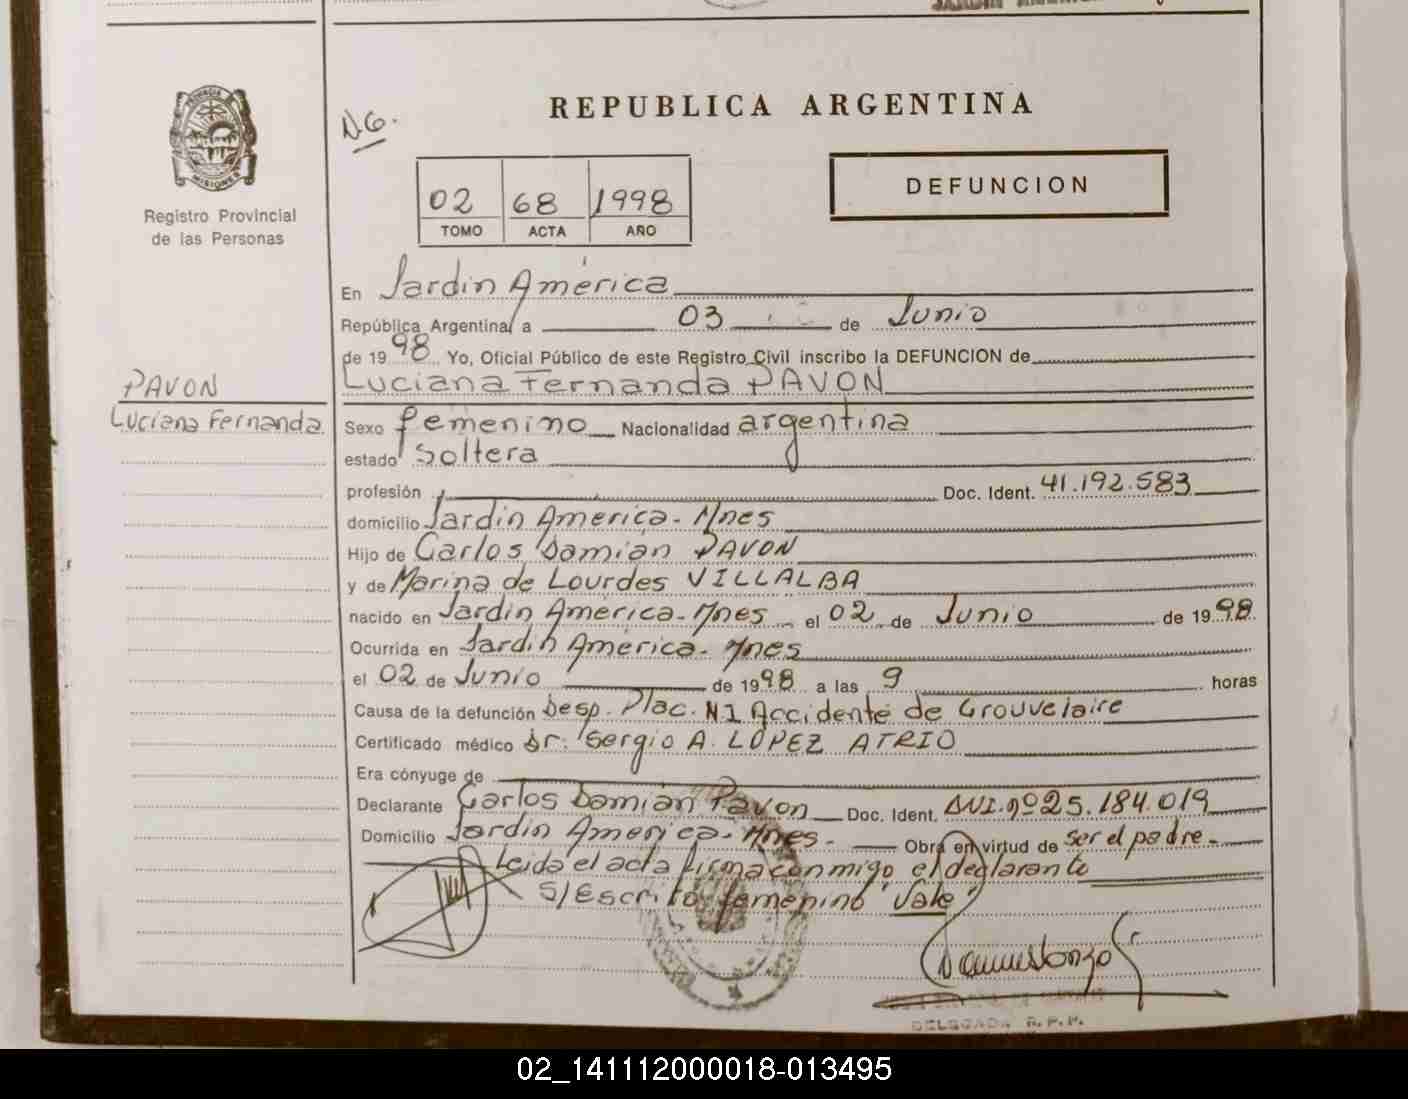 REPUBLICA ARGENTINA
N.G.
DEFUNCION
02 68 1998
TOMO ACTA AÑO
PROVINCIA DE
MISIONES
Registro Provincial
de las Personas
PAVON
Luciana Fernanda
En Jardin América
República Argentina, a 03 de Junio
de 1998 Yo, Oficial Público de este Registro Civil inscribo la DEFUNCION de
Luciana Fernanda PAVON
Sexo femenino Nacionalidad argentina
estado soltera
profesión Doc. Ident. 41.192.583
domicilio Jardin America - Mnes
Hijo de Carlos Damian PAVON
y de Marina de Lourdes VILLALBA
nacido en Jardin América - Mnes el 02 de Junio de 1998
Ocurrida en Jardin América - Mnes
el 02 de Junio de 1998 a las 9 horas
Causa de la defunción Desp. Plac. N I Accidente de Crouvelaire
Certificado médico Dr. Sergio A. LOPEZ ATRIO
Era cónyuge de
Declarante Carlos Damian Pavon Doc. Ident. DNI. nº 25.184.019
Domicilio Jardin America - Mnes - Obra en virtud de ser el padre -
Leida el acta firma conmigo el declarante
S/Escrito femenino Vale
DELEGADA R.P.P.
02_141112000018-013495